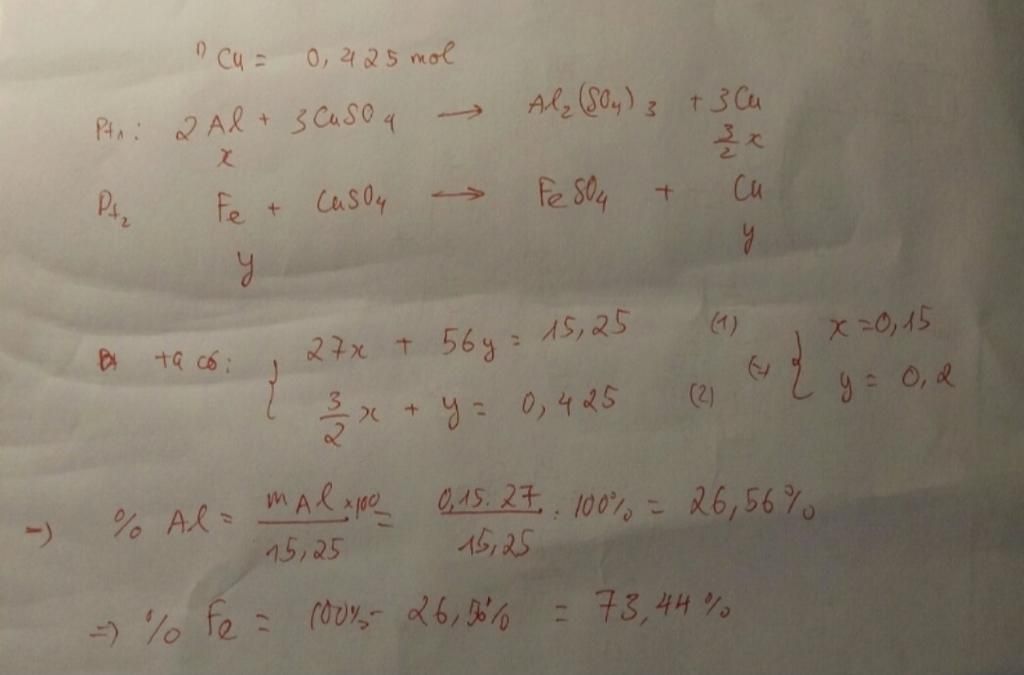 1) Cu = 0,425 mol
Pt1: 2Al + 3CuSO4 → Al2(SO4)3 + 3Cu
x 3/2 x
Pt2 Fe + CuSO4 → FeSO4 + Cu
y y
+ta có: { 27x + 56y = 15,25 (1) (=) { x = 0,15
3/2 x + y = 0,425 (2) y = 0,2
=) % Al = mAl×100 / 15,25 = 0,15.27 / 15,25 . 100% = 26,56%
=) % Fe = 100% - 26,56% = 73,44%